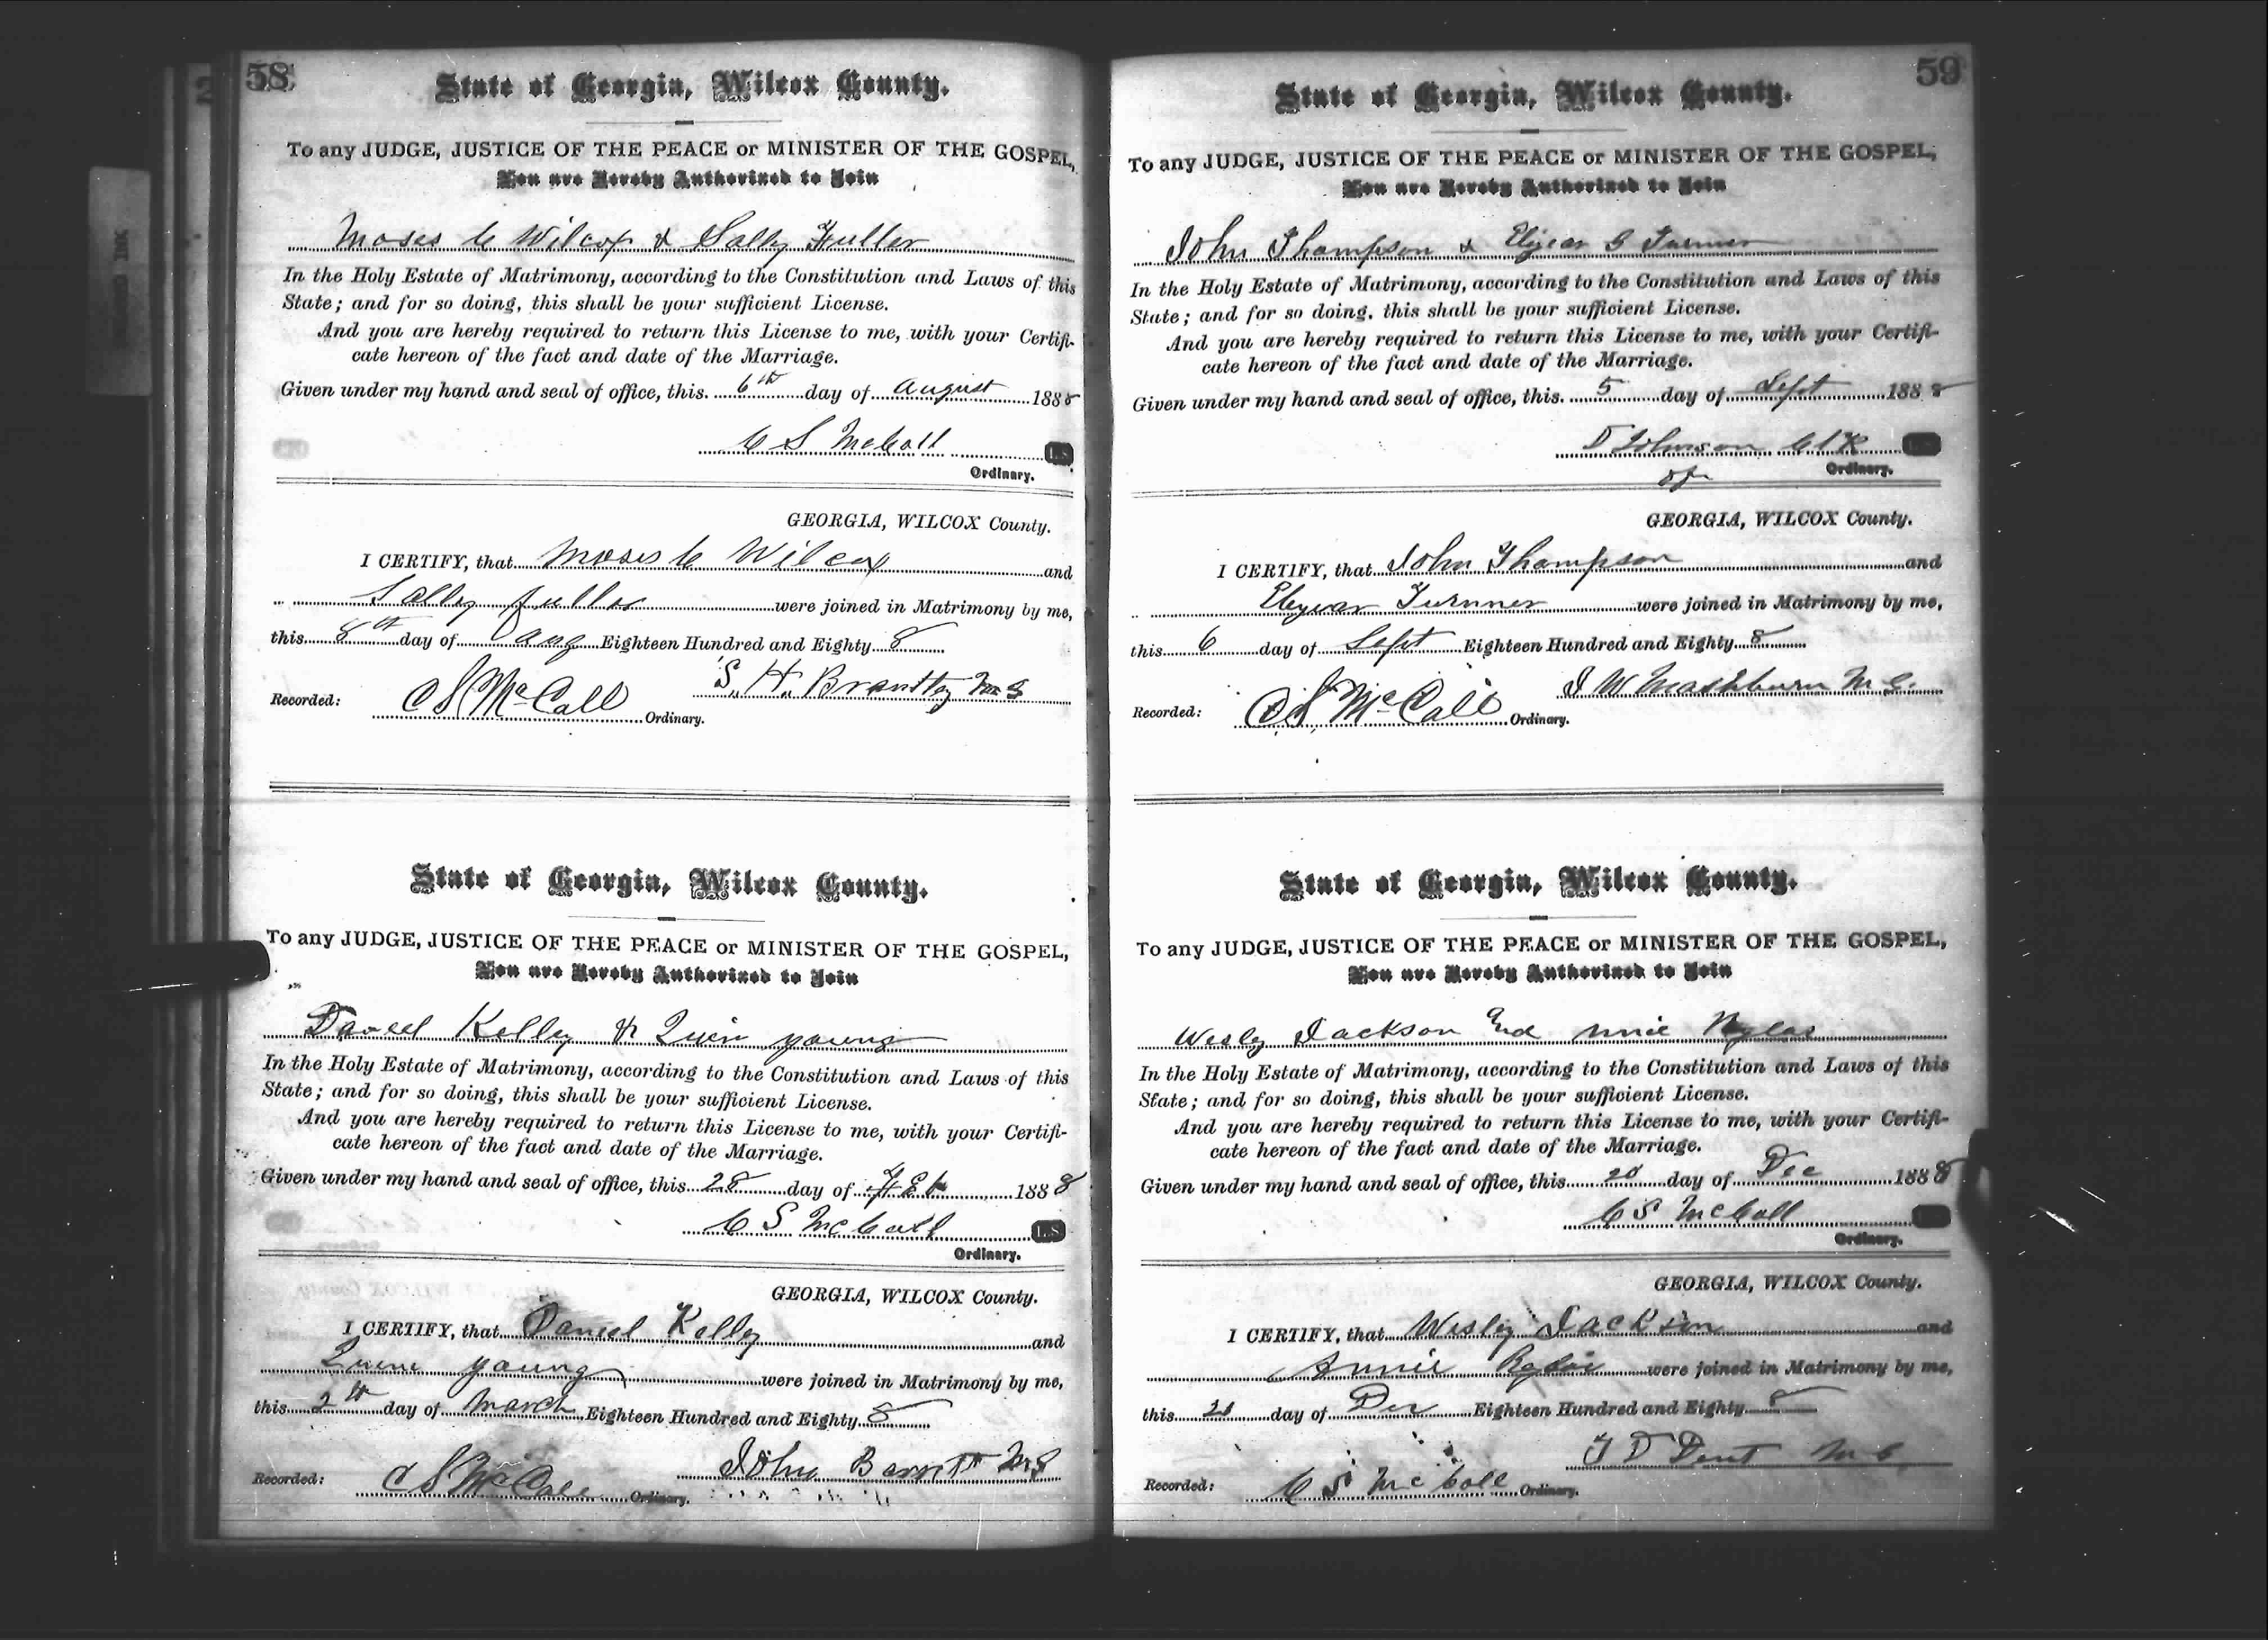 58
State of Georgia, Wilcox County.
To any JUDGE, JUSTICE OF THE PEACE or MINISTER OF THE GOSPEL,
You are Hereby Authorized to Join
Moses C Wilcox & Sally Fuller
In the Holy Estate of Matrimony, according to the Constitution and Laws of this
State; and for so doing, this shall be your sufficient License.
And you are hereby required to return this License to me, with your Certifi-
cate hereon of the fact and date of the Marriage.
Given under my hand and seal of office, this 6th day of August 1888
C S McCall L.S.
Ordinary.
GEORGIA, WILCOX County.
I CERTIFY, that Moses C Wilcox and
Salley fuller were joined in Matrimony by me,
this 8th day of Aug Eighteen Hundred and Eighty 8
S. H. Brantley M G
Recorded: C S McCall Ordinary.
State of Georgia, Wilcox County.
To any JUDGE, JUSTICE OF THE PEACE or MINISTER OF THE GOSPEL,
You are Hereby Authorized to Join
Daniel Kelley & Quin young
In the Holy Estate of Matrimony, according to the Constitution and Laws of this
State; and for so doing, this shall be your sufficient License.
And you are hereby required to return this License to me, with your Certifi-
cate hereon of the fact and date of the Marriage.
Given under my hand and seal of office, this 28 day of Feb 1888
C S McCall L.S.
Ordinary.
GEORGIA, WILCOX County.
I CERTIFY, that Daniel Kelley and
young were joined in Matrimony by me,
this 2th day of March Eighteen Hundred and Eighty 8
John M G
Recorded: C S McCall Ordinary.
59
State of Georgia, Wilcox County.
To any JUDGE, JUSTICE OF THE PEACE or MINISTER OF THE GOSPEL,
You are Hereby Authorized to Join
John Thompson &
In the Holy Estate of Matrimony, according to the Constitution and Laws of this
State; and for so doing, this shall be your sufficient License.
And you are hereby required to return this License to me, with your Certifi-
cate hereon of the fact and date of the Marriage.
Given under my hand and seal of office, this 5 day of Sept 1888
D Johnson Clk
Ordinary.
GEORGIA, WILCOX County.
I CERTIFY, that John Thompson and
Turnner were joined in Matrimony by me,
this 6 day of Sept Eighteen Hundred and Eighty 8
J W Mashburn M G.
Recorded: C S McCall Ordinary.
State of Georgia, Wilcox County.
To any JUDGE, JUSTICE OF THE PEACE or MINISTER OF THE GOSPEL,
You are Hereby Authorized to Join
Wesley Jackson And
In the Holy Estate of Matrimony, according to the Constitution and Laws of this
State; and for so doing, this shall be your sufficient License.
And you are hereby required to return this License to me, with your Certifi-
cate hereon of the fact and date of the Marriage.
Given under my hand and seal of office, this 20 day of Dec 1888
C S McCall
Ordinary.
GEORGIA, WILCOX County.
I CERTIFY, that Wesley Jackson and
Annie were joined in Matrimony by me,
this day of Dec Eighteen Hundred and Eighty 8
T D Dent M G
Recorded: C S McCall Ordinary.